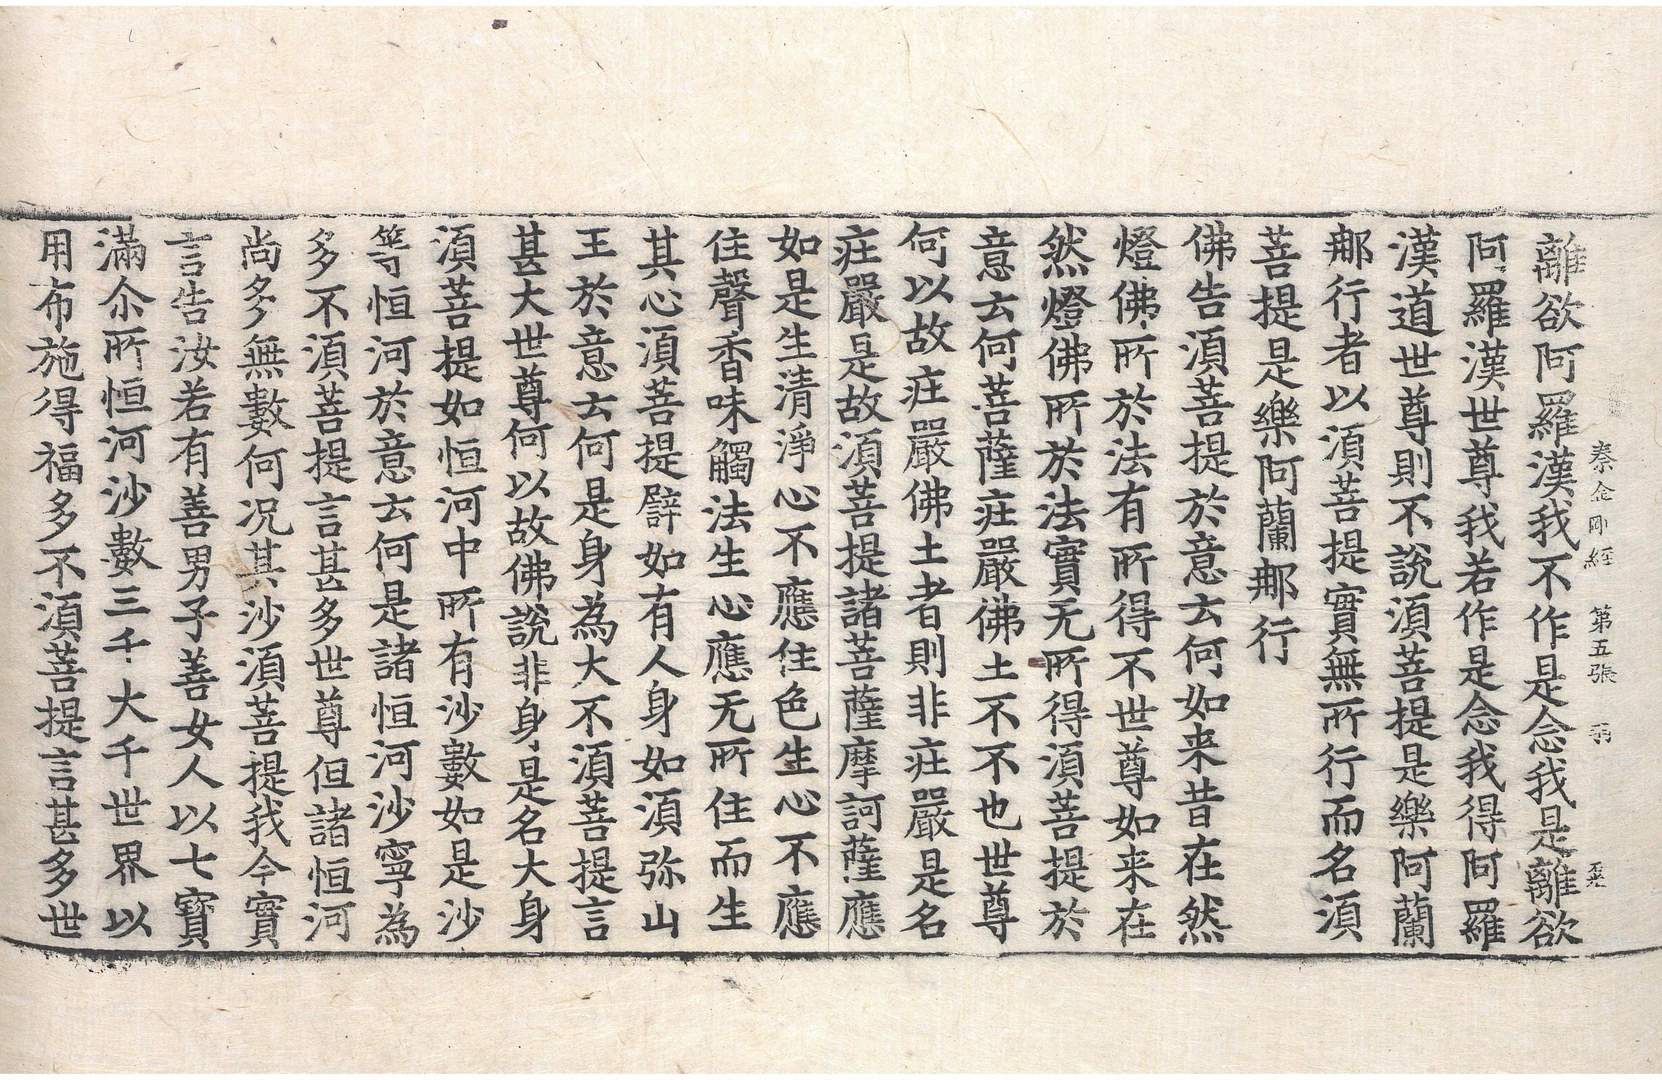 秦金剛經　第五張　羽
離欲阿羅漢我不作是念我是離欲
阿羅漢世尊我若作是念我得阿羅
漢道世尊則不說湏菩提是樂阿蘭
那行者以湏菩提實無所行而名湏
菩提是樂阿蘭那行
佛告湏菩提於意云何如来昔在然
燈佛所於法有所得不世尊如来在
然燈佛所於法實无所得湏菩提於
意云何菩薩庄嚴佛土不不也世尊
何以故庄嚴佛土者則非庄嚴是名
庄嚴是故湏菩提諸菩薩摩訶薩應
如是生清淨心不應住色生心不應
住聲香味觸法生心應无所住而生
其心湏菩提譬如有人身如湏弥山
王於意云何是身為大不湏菩提言
甚大世尊何以故佛說非身是名大身
湏菩提如恒河中所有沙數如是沙
等恒河於意云何是諸恒河沙寧為
多不湏菩提言甚多世尊但諸恒河
尚多無數何况其沙湏菩提我今實
言告汝若有善男子善女人以七寶
滿尒所恒河沙數三千大千世界以
用布施得福多不湏菩提言甚多世